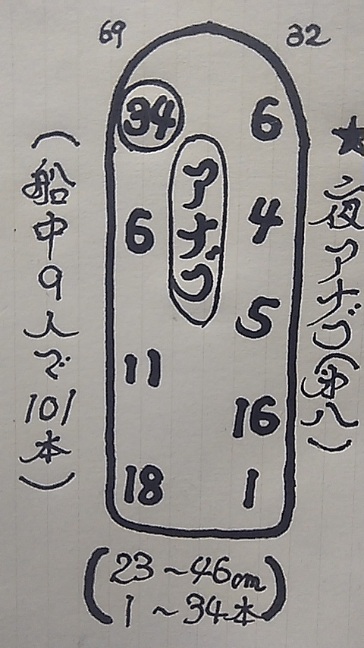 69 32
★夜アナゴ(第八)
34 6
アナゴ
6 4
5
11
16
18 1
(船中9人で101本)
(23~46cm
1~34本)